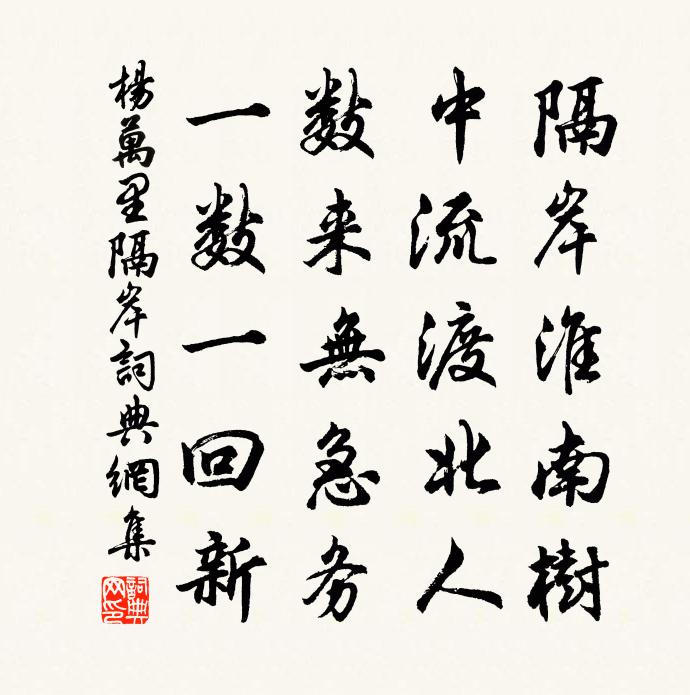 隔岸淮南樹
中流渡北人
数来無急务
一数一回新
楊萬里隔岸詞典網集
詞典網印